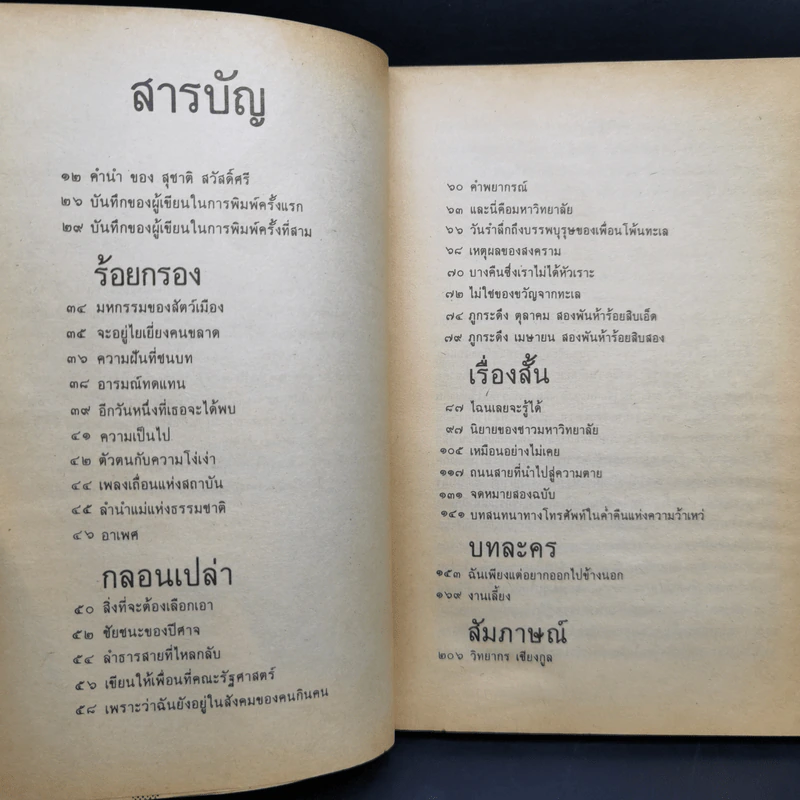 สารบัญ
๑๒ คำนำ ของ สุชาติ สวัสดิ์ศรี
๒๖ บันทึกของผู้เขียนในการพิมพ์ครั้งแรก
๒๙ บันทึกของผู้เขียนในการพิมพ์ครั้งที่สาม
ร้อยกรอง
๓๔ มหกรรมของสัตว์เมือง
๓๕ จะอยู่ไยเยี่ยงคนขลาด
๓๖ ความฝันที่ชนบท
๓๘ อารมณ์ทดแทน
๓๙ อีกวันหนึ่งที่เธอจะได้พบ
๔๑ ความเป็นไป
๔๒ ตัวตนกับความโง่เง่า
๔๔ เพลงเถื่อนแห่งสถาบัน
๔๕ ลำนำแม่แห่งธรรมชาติ
๔๖ อาเพศ
กลอนเปล่า
๕๐ สิ่งที่จะต้องเลือกเอา
๕๒ ชัยชนะของปีศาจ
๕๔ ลำธารสายที่ไหลกลับ
๕๖ เขียนให้เพื่อนที่คณะรัฐศาสตร์
๕๘ เพราะว่าฉันยังอยู่ในสังคมของคนกินคน
๖๐ คำพยากรณ์
๖๓ และนี่คือมหาวิทยาลัย
๖๖ วันรำลึกถึงบรรพบุรุษของเพื่อนโพ้นทะเล
๖๘ เหตุผลของสงคราม
๗๐ บางคืนซึ่งเราไม่ได้หัวเราะ
๗๒ ไม่ใช่ของขวัญจากทะเล
๗๔ ภูกระดึง ตุลาคม สองพันห้าร้อยสิบเอ็ด
๗๙ ภูกระดึง เมษายน สองพันห้าร้อยสิบสอง
เรื่องสั้น
๘๗ ไฉนเลยจะรู้ได้
๙๗ นิยายของชาวมหาวิทยาลัย
๑๐๕ เหมือนอย่างไม่เคย
๑๑๗ ถนนสายที่นำไปสู่ความตาย
๑๓๑ จดหมายสองฉบับ
๑๔๑ บทสนทนาทางโทรศัพท์ในค่ำคืนแห่งความว้าเหว่
บทละคร
๑๕๓ ฉันเพียงแต่อยากออกไปข้างนอก
๑๖๙ งานเลี้ยง
สัมภาษณ์
๒๐๖ วิทยากร เชียงกูล